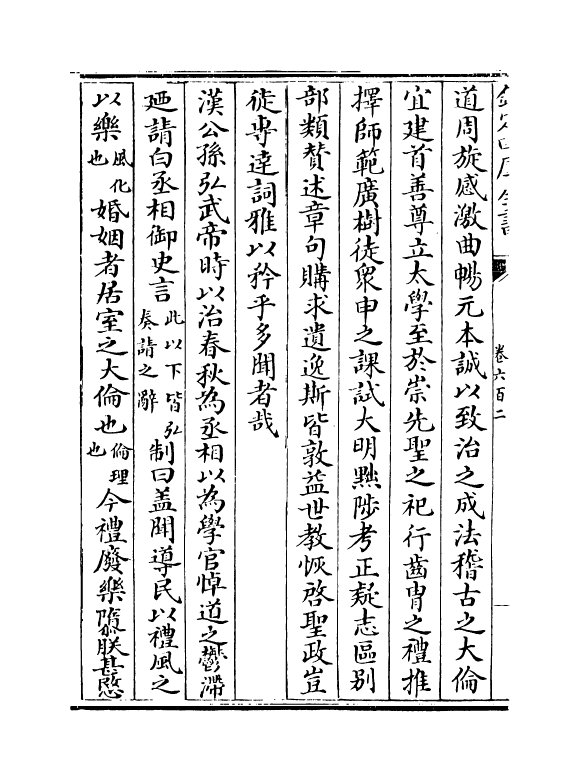 欽定四庫全書
卷六百二
道周旋感激曲暢元本誠以致治之成法稽古之大倫
宜建首善尊立太學至於崇先聖之祀行齒胄之禮推
擇師範廣樹徒衆申之課試大明黜陟考正疑志區別
部類賛述章句購求遺逸斯皆敦益世教恢啓聖政豈
徒専達詞雅以矜乎多聞者哉
漢公孫弘武帝時以治春秋為丞相以為學官悼道之鬱滯
廼請白丞相御史言此以下皆弘奏請之辭制曰盖聞導民以禮風之
以樂風化也婚姻者居室之大倫也倫理也今禮廢樂隳朕甚愍